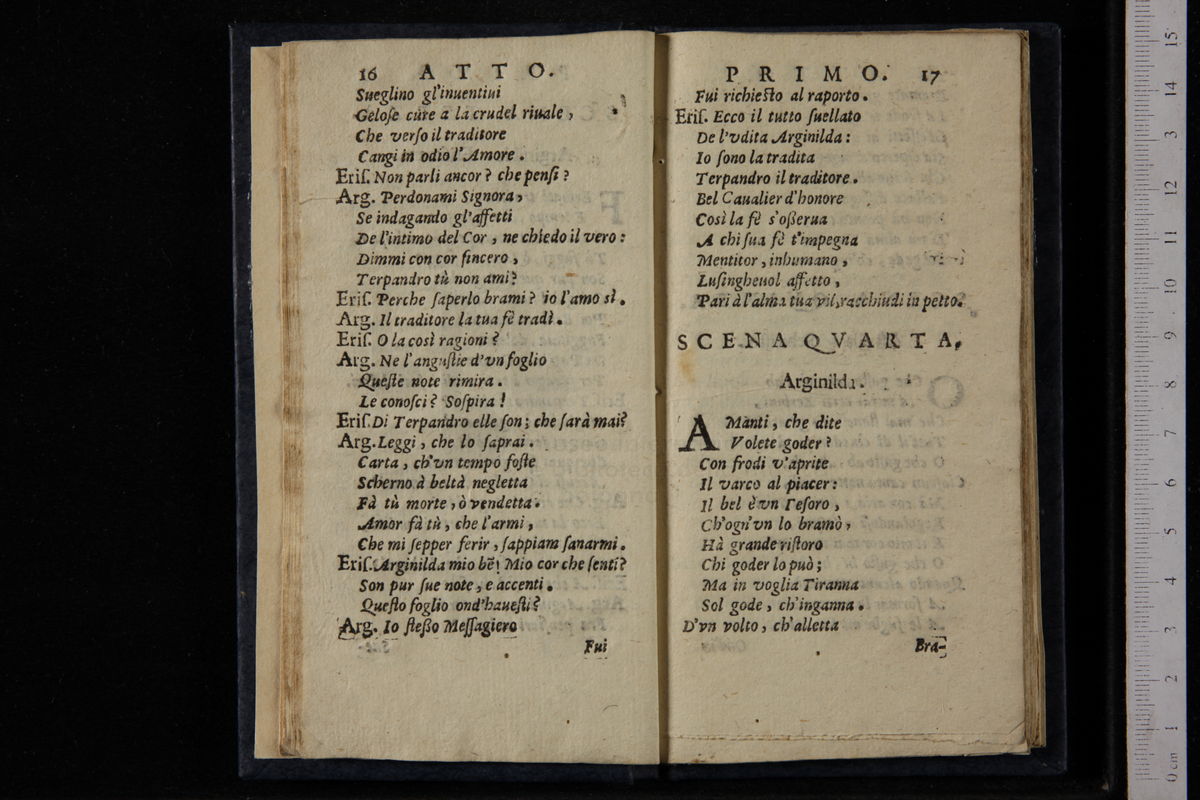 16 ATTO.
Sueglino gl'inuentiui
Gelose cure a la crudel riuale,
Che verso il traditore
Cangi in odio l'Amore.
Eris. Non parli ancor? che pensi?
Arg. Perdonami Signora,
Se indagando gl'affetti
De l'intimo del Cor, ne chiedo il vero:
Dimmi con cor sincero,
Terpandro tù non ami?
Eris. Perche saperlo brami? io l'amo sì.
Arg. Il traditore la tua fè tradì.
Eris. O la così ragioni?
Arg. Ne l'angustie d'vn foglio
Queste note rimira.
Le conosci? Sospira!
Eris. Di Terpandro elle son; che sarà mai?
Arg. Leggi, che lo saprai.
Carta, ch'vn tempo foste
Scherno à beltà negletta
Fà tù morte, ò vendetta.
Amor fà tù, che l'armi,
Che mi sepper ferir, sappiam sanarmi.
Eris. Arginilda mio bẽ! Mio cor che senti?
Son pur sue note, e accenti.
Questo foglio ond'hauesti?
Arg. Io stesso Messagiero
Fui
PRIMO. 17
Fui richiesto al raporto.
Eris. Ecco il tutto suellato
De l'vdita Arginilda:
Io sono la tradita
Terpandro il traditore.
Bel Caualier d'honore
Così la fè s'osserua
A chi sua fè t'impegna
Mentitor, inhumano,
Lusingheuol affetto,
Pari à l'alma tua vil, racchiudi in petto.
SCENA QVARTA.
Arginilda.
AManti, che dite
Volete goder?
Con frodi v'aprite
Il varco al piacer:
Il bel è vn Tesoro,
Ch'ogn'vn lo bramò,
Hà grande ristoro
Chi goder lo può;
Ma in voglia Tiranna
Sol gode, ch'inganna.
D'vn volto, ch'alletta
Bra-